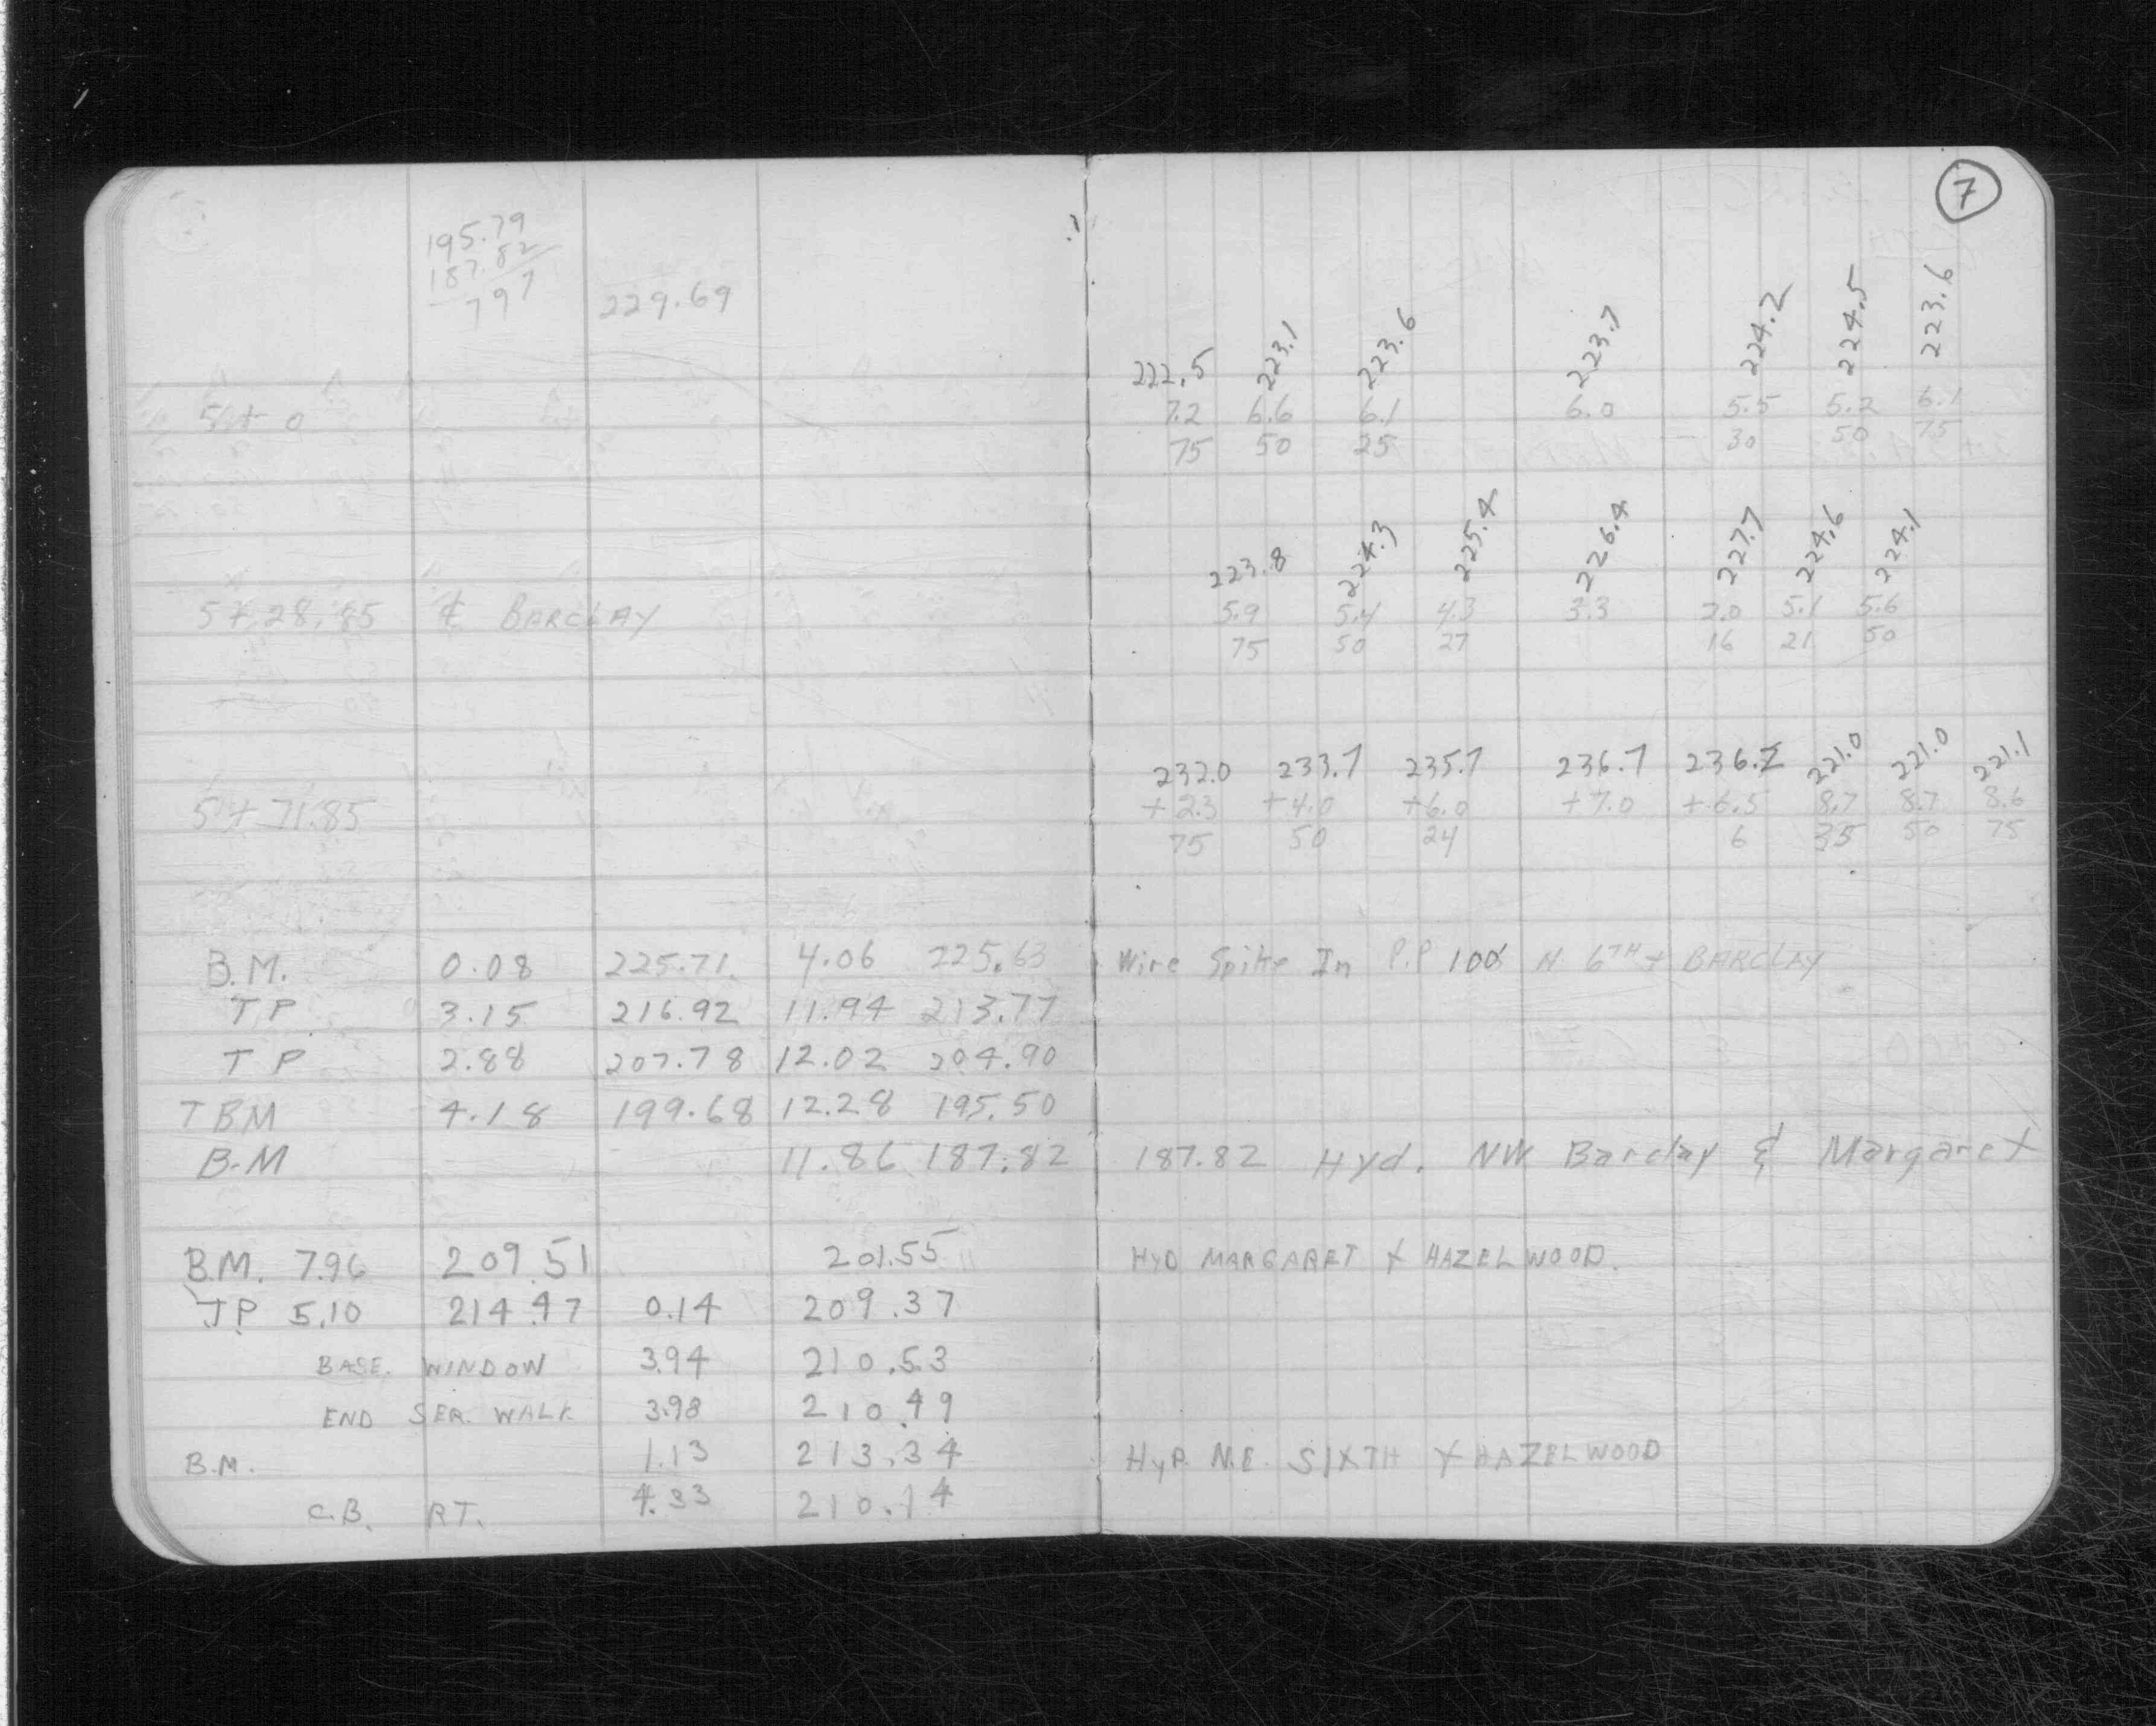 7
195.79
187.82
797
229.69
222.5 223.1 223.6 223.7 224.2 224.5 223.6
5+0 7.2 6.6 6.1 6.0 5.5 5.2 6.1
75 50 25 30 50 75
223.8 224.3 225.4 226.4 227.7 224.6 224.1
5+28.85 ℄ BARCLAY 5.9 5.4 4.3 3.3 2.0 5.1 5.6
75 50 27 16 21 50
232.0 233.7 235.7 236.7 236.2 221.0 221.0 221.1
5+71.85 +2.3 +4.0 +6.0 +7.0 +6.5 8.7 8.7 8.6
75 50 24 6 35 50 75
B.M. 0.08 225.71 4.06 225.63 Wire Spike In P.P 100' N 6TH + BARCLAY
TP 3.15 216.92 11.94 213.77
TP 2.88 207.78 12.02 204.90
TBM 4.18 199.68 12.28 195.50
B-M 11.86 187.82 187.82 Hyd. NW Barclay & Margaret
B.M. 7.96 209.51 201.55 HYD MARGARET + HAZELWOOD.
T.P. 5.10 214.47 0.14 209.37
BASE. WINDOW 3.94 210.53
END SER. WALK 3.98 210.49
B.M. 1.13 213.34 HYD. N.E. SIXTH + HAZELWOOD
C.B. RT. 4.33 210.14